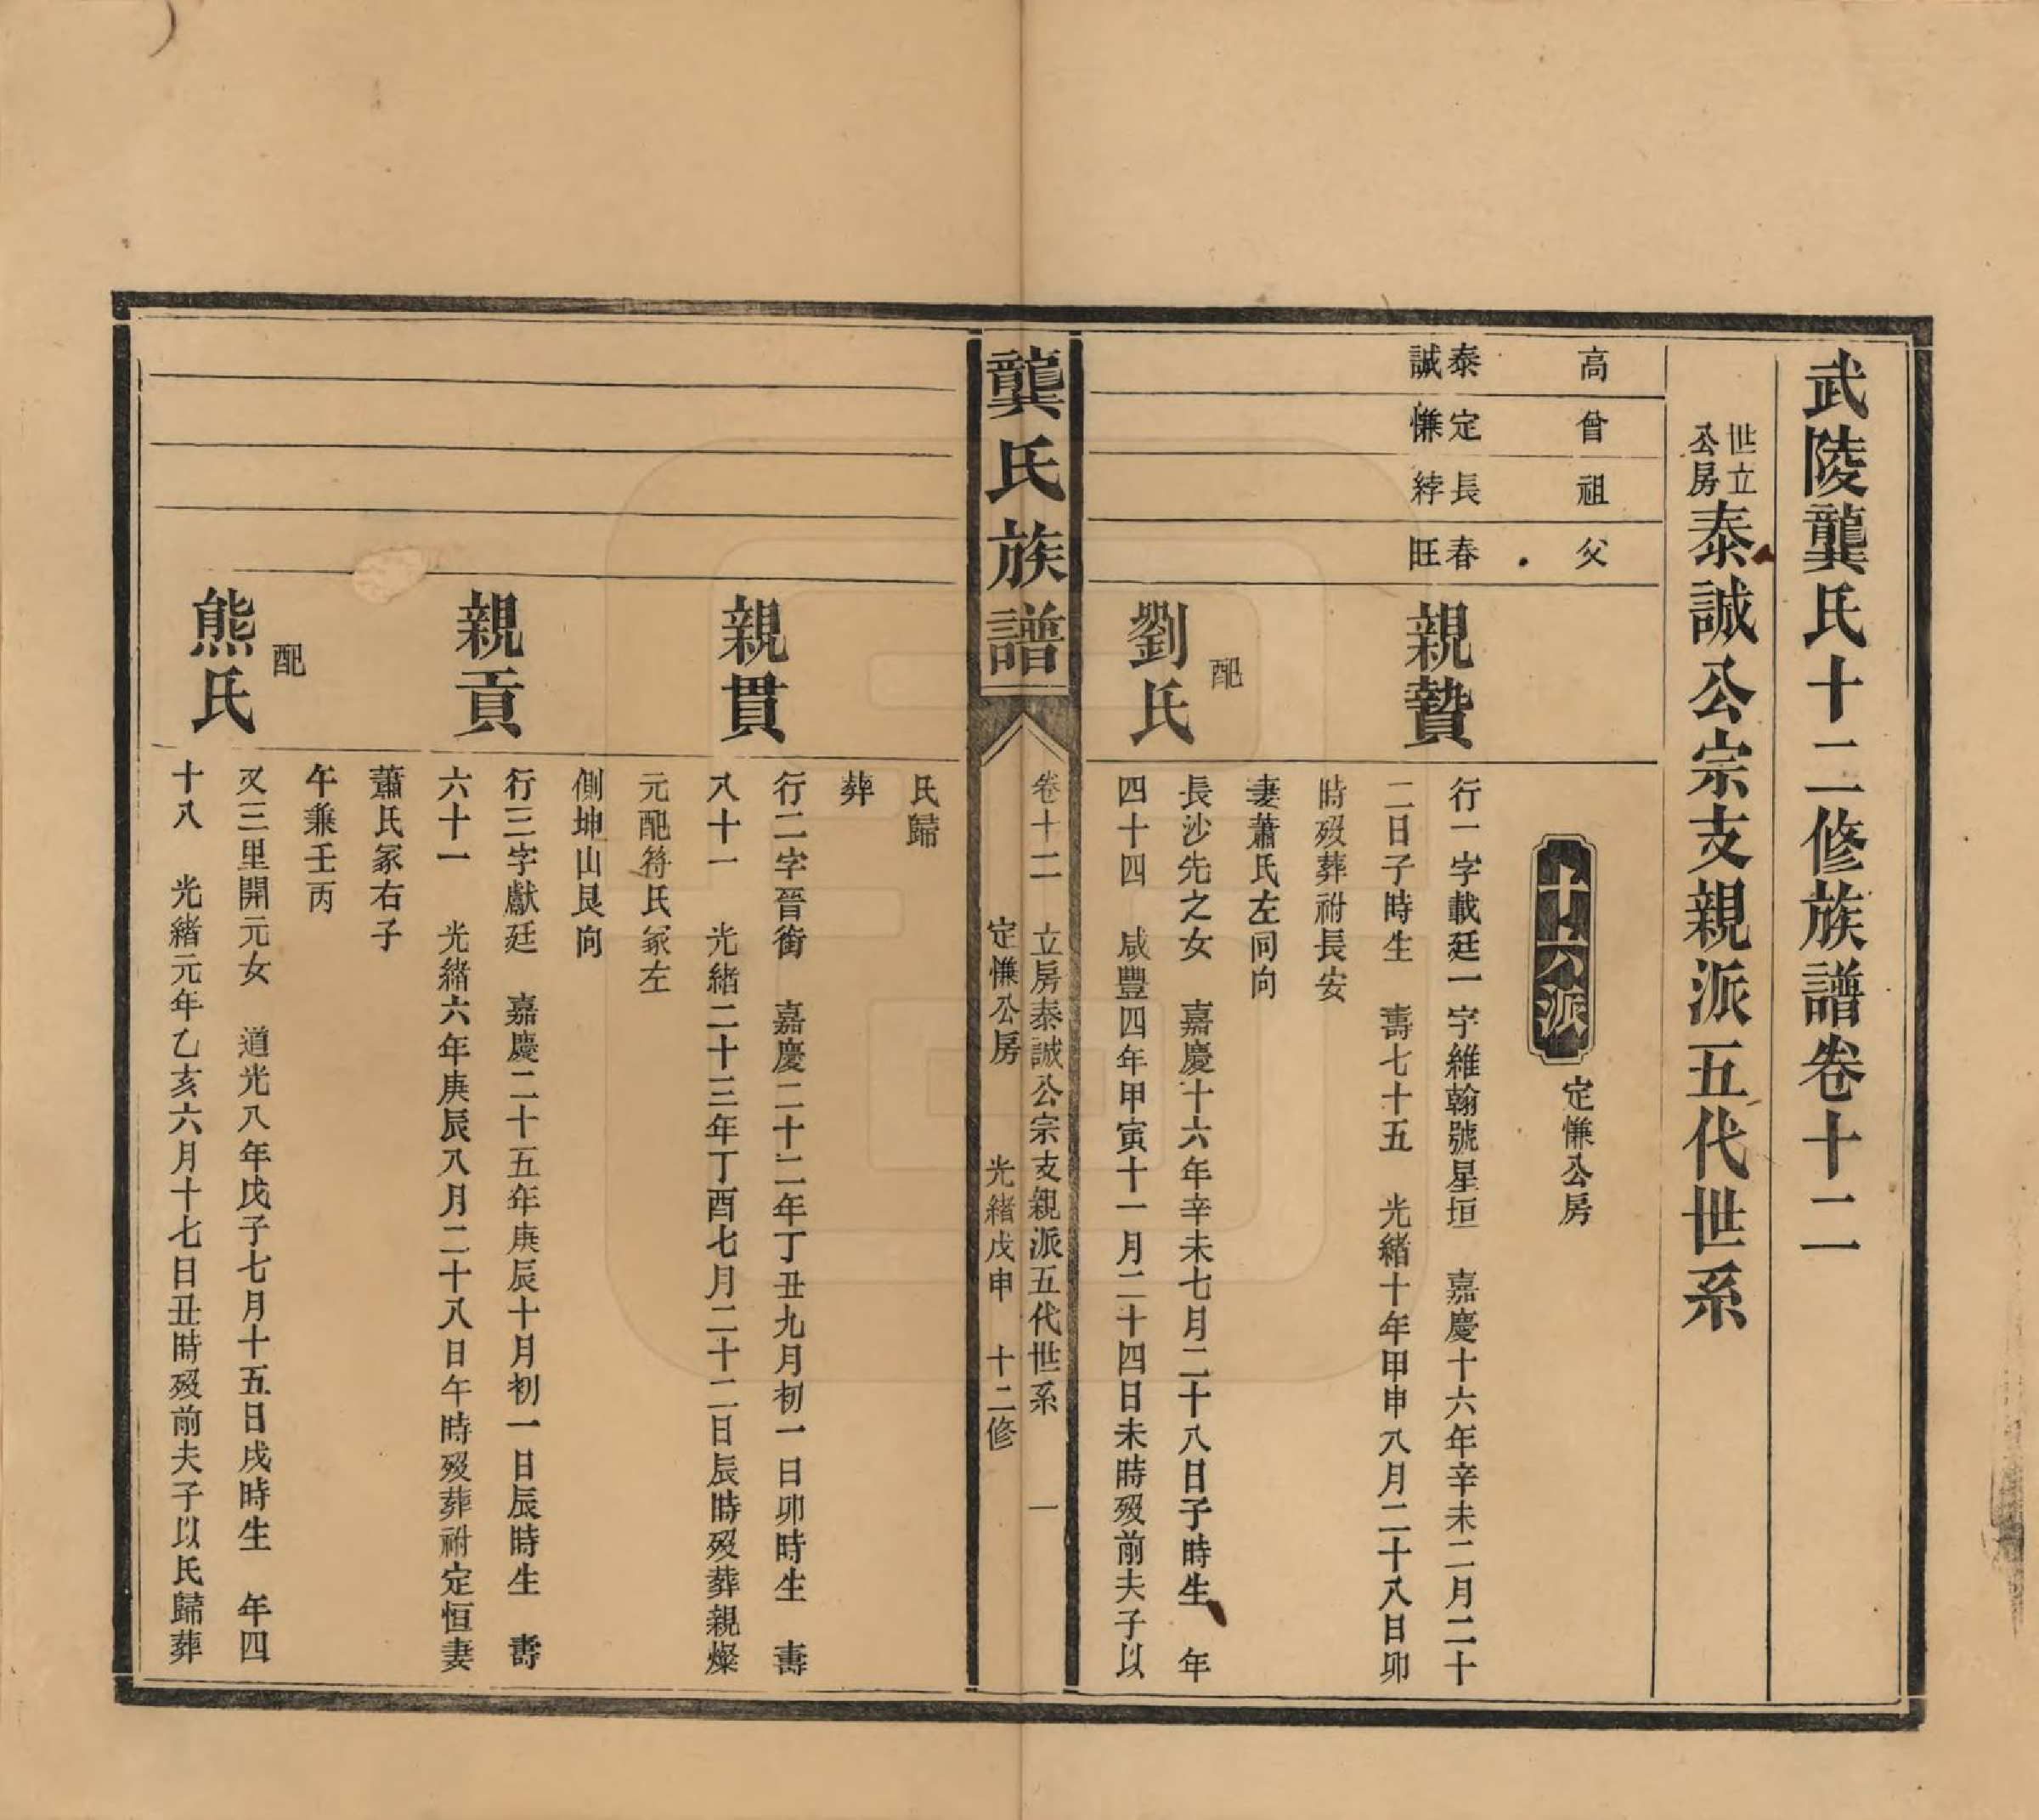 武陵龔氏十二修族譜卷十二
世立公房泰誠公宗支親派五代世系
高
曾
祖
父
十六派
定慊公房
泰誠
定慊
長綍
春旺
親贄
行一字載廷一字維翰號星垣 嘉慶十六年辛未二月二十
二日子時生 壽七十五 光緒十年甲申八月二十八日卯
時歿葬祔長安
妻蕭氏左同向
配
劉氏
長沙先之女 嘉慶十六年辛未七月二十八日子時生 年
四十四 咸豐四年甲寅十一月二十四日未時歿前夫子以
龔氏族譜
卷十二 立房泰誠公宗支親派五代世系 一
定慊公房 光緒戊申 十二修
氏歸
葬
親貫
行二字晉銜 嘉慶二十二年丁丑九月初一日卯時生 壽
八十一 光緒二十三年丁酉七月二十二日辰時歿葬親燦
元配符氏冢左
側坤山艮向
親貢
行三字獻廷 嘉慶二十五年庚辰十月初一日辰時生 壽
六十一 光緒六年庚辰八月二十八日午時歿葬祔定恒妻
蕭氏冢右子
午兼壬丙
配
熊氏
㕛三里開元女 道光八年戊子七月十五日戌時生 年四
十八 光緒元年乙亥六月十七日丑時歿前夫子以氏歸葬